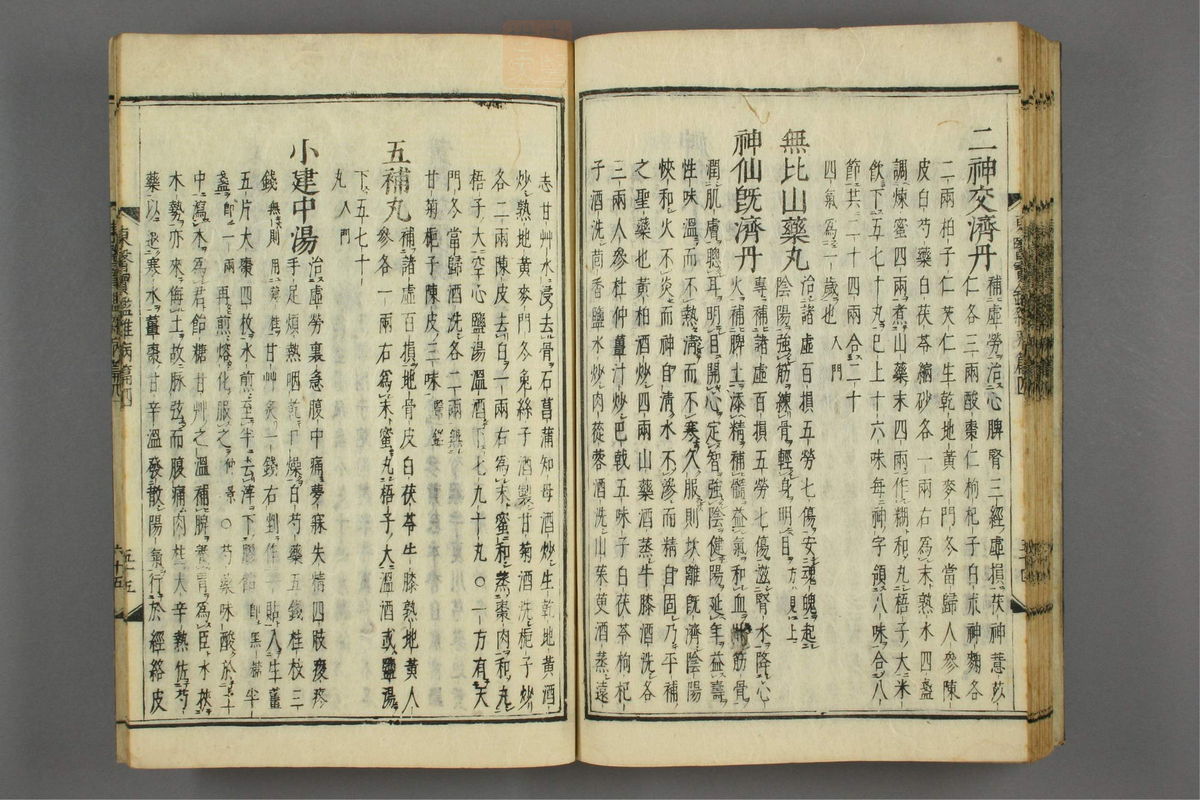 二神交濟丹 補虛勞治心脾腎三經虛損茯神薏苡
仁各三兩酸棗仁枸杞子白朮神麴各
二兩柏子仁芡仁生乾地黃麥門冬當歸人參陳
皮白芍藥白茯苓縮砂各一兩右爲末熟水四盞
調煉蜜四兩煮山藥末四兩作糊和丸梧子大米
飮下五七十丸已上十六味每神字領八味合八
節共二十四兩合二十
四氣爲一歲也入門
無比山藥丸 治諸虛百損五勞七傷安魂魄起
陰陽強筋練骨輕身明目方見上
神仙旣濟丹 專補諸虛百損五勞七傷滋腎水降心
火補脾土添精補髓益氣和血壯筋骨
潤肌膚聰耳明目開心定智強陰健陽延年益壽
性味溫而不熱淸而不寒久服則坎離旣濟陰陽
恊和火不炎而神自淸水不滲而精自固乃平補
之聖藥也黃柏酒炒四兩山藥酒蒸牛膝酒洗各
三兩人參杜仲薑汁炒巴戟五味子白茯苓枸杞
子酒洗茴香鹽水炒肉蓯蓉酒洗山茱萸酒蒸遠
志甘艸水浸去骨石菖蒲知母酒炒生乾地黃酒
炒熟地黃麥門冬兔絲子酒製甘菊酒洗梔子炒
各二兩陳皮去白一兩右爲末蜜和蒸棗肉和丸
梧子大空心鹽湯溫酒下七九十丸○一方有天
門冬當歸酒洗各二兩無
甘菊梔子陳皮三味醫鑑
五補丸 補諸虛百損地骨皮白茯苓牛膝熟地黃人
參各一兩右爲末蜜丸梧子大溫酒或鹽湯
下五七十
丸入門
小建中湯 治虛勞裏急腹中痛夢寐失精四肢痠疼
手足煩熱咽乾口燥白芍藥五錢桂枝三
錢無則用甘艸炙一錢右剉作一貼入生薑
五片大棗四枚水煎至半去滓下膠飴卽黑糖半
盞卽一兩再煎熔化服之仲景○芍藥味酸於土
中瀉木爲君飴糖甘艸之溫補脾養胃爲臣水挾
木勢亦來侮土故脉弦而腹痛肉桂大辛熱佐芍
藥以退寒水薑棗甘辛溫發散陽氣行於經絡皮
東醫寶鑑雜病篇四